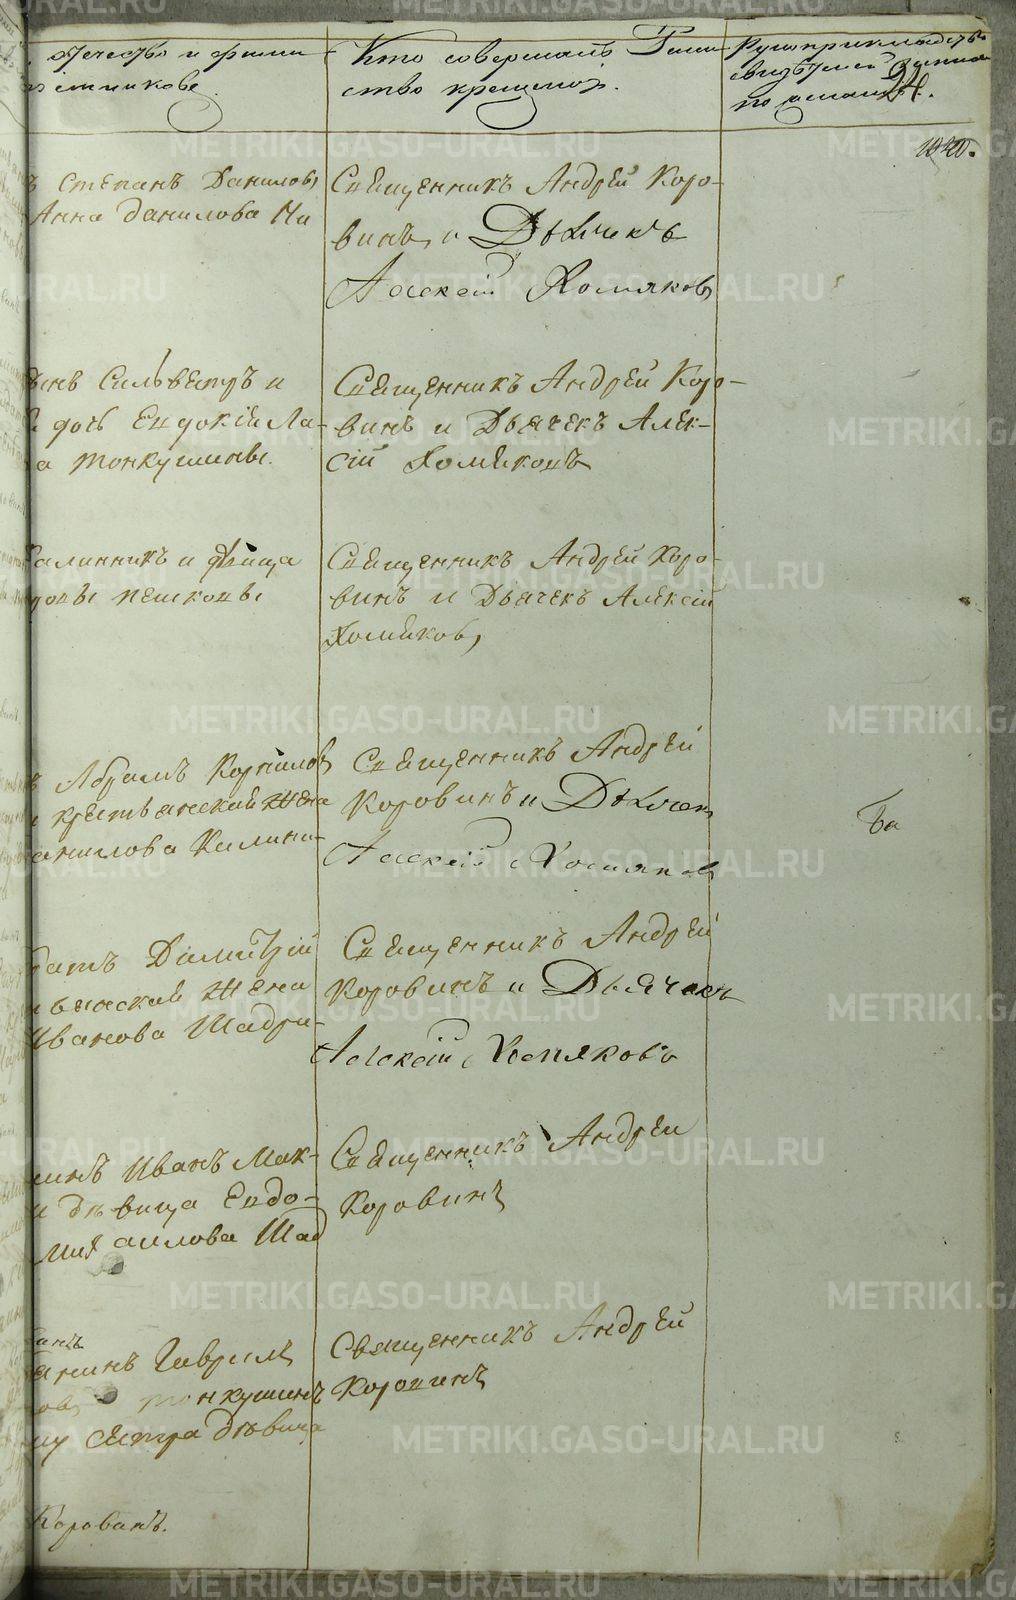 отечество и фами-
Кто совершалъ Таин-
ство крещенія.
Рукоприкладство
свидѣтелей записи
по желанію.
24.
Степанъ Даниловъ
Анна Данилова Ка
Священникъ Андрей Коро-
винъ и Дьячекъ
Алексѣй Хомяковъ
Сильвестръ и
дочь Евдокiя Ла-
а Тонкушины.
Священникъ Андрей Коро-
винъ и Дьячекъ Алек-
сій Хомяковъ
Калинникъ и
Пешковы
Священникъ Андрей Коро-
винъ и Дьячекъ Алексій
Хомяковъ
Абрамъ Корниловъ
крестьянской жена
Данилова Калини-
Священникъ Андрей
Коровинъ и Дьячекъ
Алексій Хомяковъ
братъ Димитрій
жена
Иванова Шадри-
Священникъ Андрей
Коровинъ и Дьячекъ
Алексій Хомяковъ
нинъ Иванъ Мак-
и дѣвица Евдо-
Михаилова Шад
Священникъ Андрей
Коровинъ
янинъ Гаврилъ
овъ Тонкушинъ
дѣвица
Священникъ Андрей
Коровинъ
Коровинъ.
METRIKI.GASO-URAL.RU